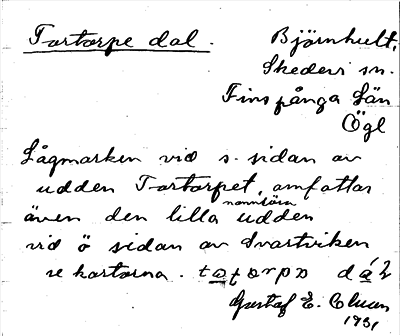 Tortorpe dal.
Björnhult,
Skedevi sn.
Finspånga län
Ögl
Lågmarken vid s. sidan av
udden Tortorpet, omfattar
även den lilla namnlösa udden
vid ö sidan av Svartviken
se kartorna.
Gustaf E. Olsson
1931